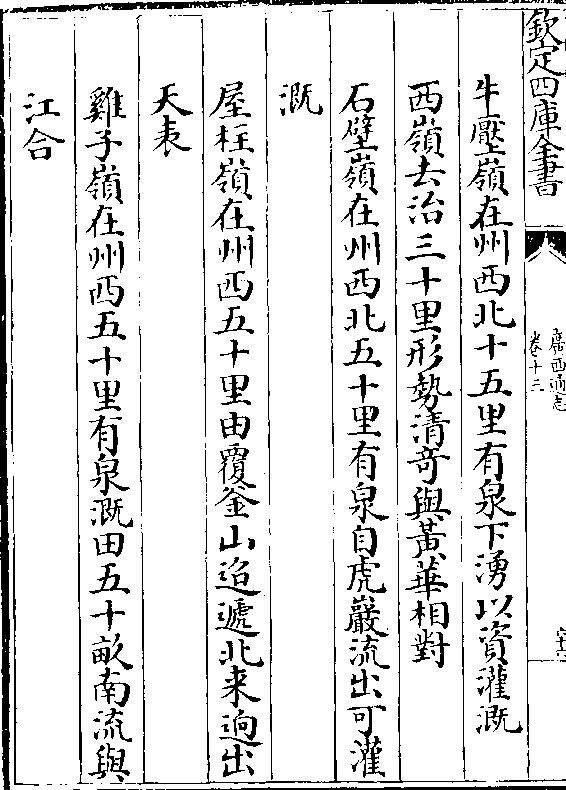 欽定四庫全書
廣西通志
卷十三
牛壓嶺在州西北十五里有泉下湧以資灌溉
西嶺去治三十里形勢清奇與黃華相對
石壁嶺在州西北五十里有泉自虎巖流出可灌
溉
屋柱嶺在州西五十里由覆釜山迢遞北来逈出
天表
雞子嶺在州西五十里有泉溉田五十畝南流與
江合